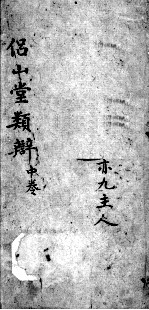 侶山堂類辯中卷
亦九主人